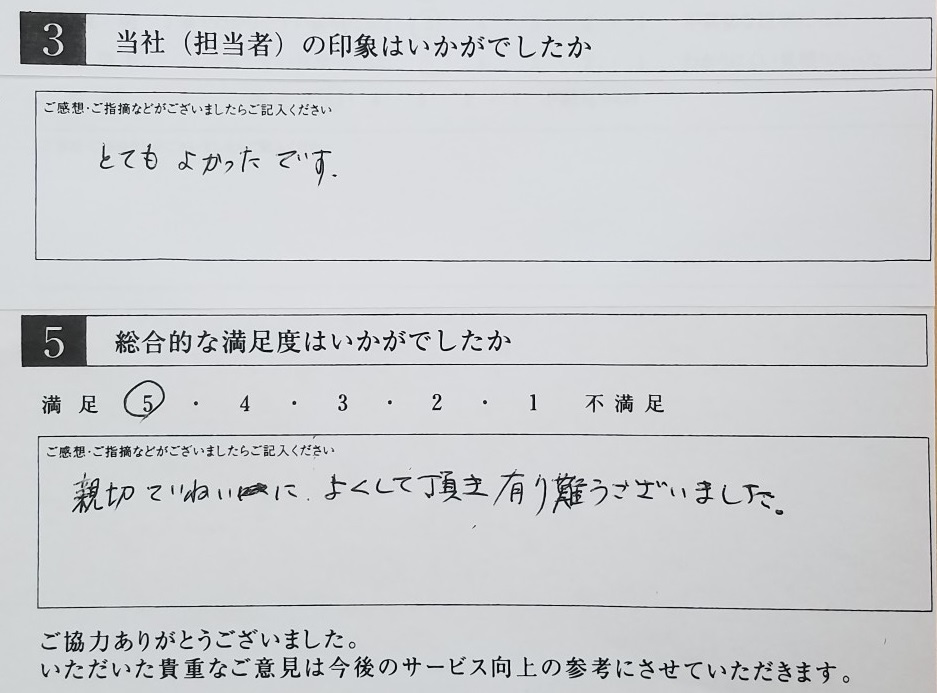 3 当社（担当者）の印象はいかがでしたか
ご感想・ご指摘などがございましたらご記入ください
とても よかったです.
5 総合的な満足度はいかがでしたか
満足 5 ・ 4 ・ 3 ・ 2 ・ 1 不満足
ご感想・ご指摘などがございましたらご記入ください
親切ていねいに、よくして頂き有り難うございました。
ご協力ありがとうございました。
いただいた貴重なご意見は今後のサービス向上の参考にさせていただきます。